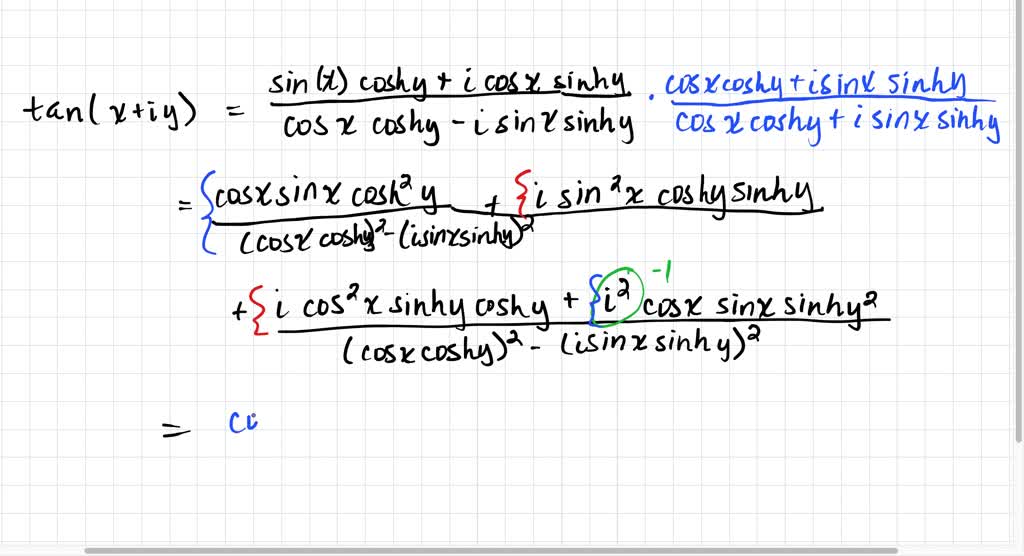 tan(x+iy) = sin(x) coshy + i cosx sinhy / cosx coshy - i sinx sinhy · cosxcoshy + isinx sinhy / cosxcoshy + i sinx sinhy
= { cosx sinx cosh² y + { i sin² x coshy sinhy / (cosx coshy)² - (isinxsinhy)²
+ { i cos² x sinhy coshy + { i² -1 cosx sinx sinhy² / (cosxcoshy)² - (isinx sinhy)²
= co